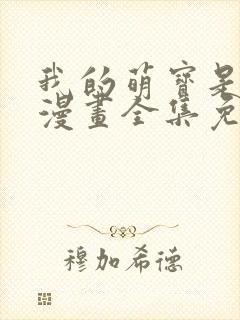 我的萌寶是
漫畫全集免
穆加希德